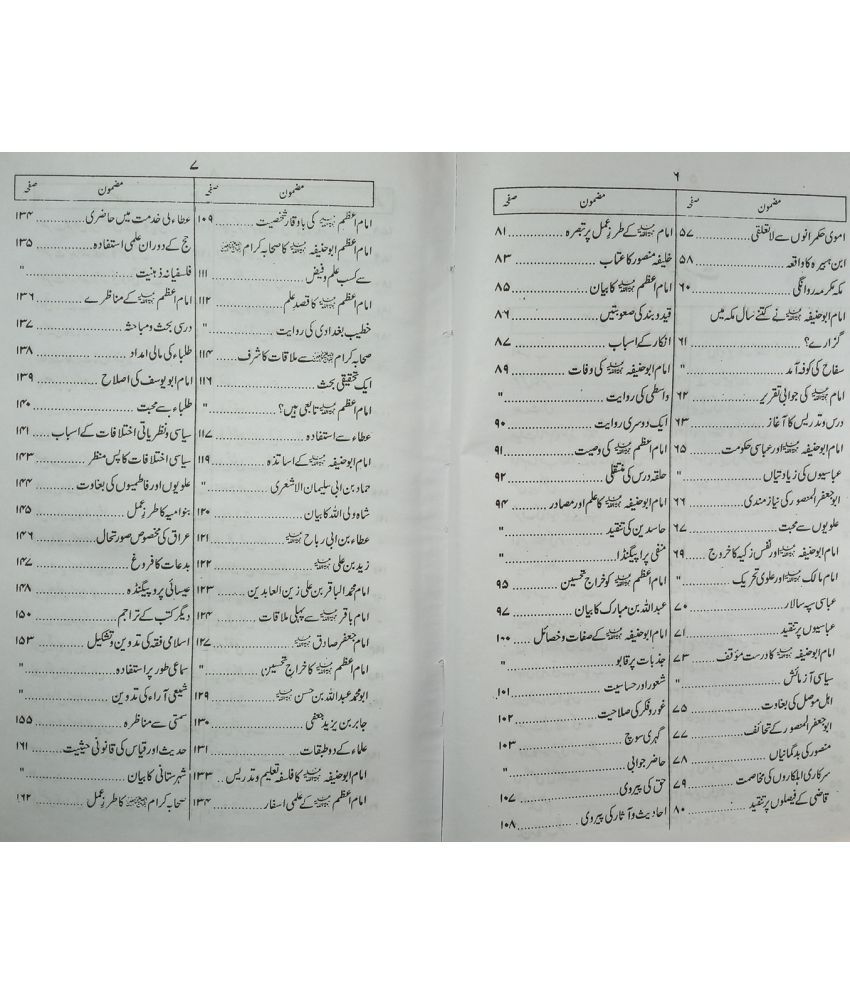 ۶
مضمون صفحہ
اموی حکمرانوں سے لاتعلقی ۵۷
ابن ہبیرہ کا واقعہ ۵۸
مکہ مکرمہ روانگی ۶۰
امام ابوحنیفہ رحمۃ اللہ علیہ نے کتنے سال مکہ میں
گزارے؟ ۶۱
سفاح کی کوفہ آمد "
امام رحمۃ اللہ علیہ کی جوابی تقریر ۶۲
درس و تدریس کا آغاز ۶۳
امام ابوحنیفہ رحمۃ اللہ علیہ اور عباسی حکومت ۶۵
عباسیوں کی زیادتیاں "
ابوجعفر المنصور کی نیاز مندی ۶۶
علویوں سے محبت ۶۷
امام ابوحنیفہ رحمۃ اللہ علیہ اور نفس زکیہ کا خروج ۶۹
امام مالک رحمۃ اللہ علیہ اور علوی تحریک "
عباسی سپہ سالار ۷۰
عباسیوں پر تنقید ۷۱
امام ابوحنیفہ رحمۃ اللہ علیہ کا درست مؤقف ۷۳
سیاسی آزمائش "
اہل موصل کی بغاوت ۷۵
ابوجعفر المنصور کے تحائف ۷۷
منصور کی بدگمانیاں ۷۸
سرکاری اہلکاروں کی مخاصمت ۷۹
قاضی کے فیصلوں پر تنقید ۸۰
مضمون صفحہ
امام اعظم رحمۃ اللہ علیہ کے طرز عمل پر تبصرہ ۸۱
خلیفہ منصور کا عتاب ۸۳
امام اعظم رحمۃ اللہ علیہ کا بیان ۸۵
قید و بند کی صعوبتیں ۸۶
انکار کے اسباب ۸۷
امام ابوحنیفہ رحمۃ اللہ علیہ کی وفات ۸۹
واسطی کی روایت "
ایک دوسری روایت ۹۰
امام اعظم رحمۃ اللہ علیہ کی وصیت ۹۱
حلقہ درس کی منتقلی ۹۲
امام ابوحنیفہ رحمۃ اللہ علیہ کا علم اور مصادر ۹۴
حاسدین کی تنقید "
منفی پراپیگنڈا "
امام اعظم رحمۃ اللہ علیہ کو خراج تحسین ۹۵
عبداللہ بن مبارک کا بیان ۹۷
امام ابوحنیفہ رحمۃ اللہ علیہ کے صفات و خصائل ۱۰۰
جذبات پر قابو "
شعور اور حساسیت ۱۰۱
غور و فکر کی صلاحیت ۱۰۲
گہری سوچ ۱۰۳
حاضر جوابی "
حق کی پیروی ۱۰۷
احادیث و آثار کی پیروی ۱۰۸
۷
مضمون صفحہ
امام اعظم رحمۃ اللہ علیہ کی باوقار شخصیت ۱۰۹
امام اعظم ابوحنیفہ رحمۃ اللہ علیہ کا صحابہ کرام
سے کسب علم و فیض ۱۱۱
امام اعظم رحمۃ اللہ علیہ کا قصد علم ۱۱۲
خطیب بغدادی کی روایت "
صحابہ کرام سے ملاقات کا شرف ۱۱۴
ایک تحقیقی بحث ۱۱۶
امام اعظم رحمۃ اللہ علیہ تابعی ہیں؟ "
عطاء سے استفادہ ۱۱۷
امام ابوحنیفہ رحمۃ اللہ علیہ کے اساتذہ ۱۱۹
حماد بن ابی سلیمان الاشعری "
شاہ ولی اللہ کا بیان ۱۲۰
عطاء بن ابی رباح رحمۃ اللہ علیہ ۱۲۱
زید بن علی رحمۃ اللہ علیہ ۱۲۲
امام محمد الباقر بن علی زین العابدین ۱۲۳
امام باقر رحمۃ اللہ علیہ سے پہلی ملاقات ۱۲۴
امام جعفر صادق رحمۃ اللہ علیہ ۱۲۷
امام اعظم رحمۃ اللہ علیہ کا خراج تحسین "
ابو محمد عبداللہ بن حسن رحمۃ اللہ علیہ ۱۲۹
جابر بن یزید جعفی ۱۳۰
علماء کے دو طبقات ۱۳۱
امام ابوحنیفہ رحمۃ اللہ علیہ کا فلسفہ تعلیم و تدریس ۱۳۳
امام اعظم رحمۃ اللہ علیہ کے علمی اسفار ۱۳۴
مضمون صفحہ
عطاء کی خدمت میں حاضری ۱۳۴
حج کے دوران علمی استفادہ ۱۳۵
فلسفیانہ ذہنیت "
امام اعظم رحمۃ اللہ علیہ کے مناظرے ۱۳۶
درسی بحث و مباحث ۱۳۷
طلباء کی مالی امداد ۱۳۸
امام ابو یوسف کی اصلاح ۱۳۹
طلباء سے محبت ۱۴۰
سیاسی و نظریاتی اختلافات کے اسباب ۱۴۱
سیاسی اختلافات کا پس منظر ۱۴۳
علویوں اور فاطمیوں کی بغاوت ۱۴۴
بنو امیہ کا طرز عمل ۱۴۵
عراق کی مخصوص صورتحال ۱۴۶
بدعات کا فروغ ۱۴۷
عیسائی پروپیگنڈہ ۱۴۸
دیگر کتب کے تراجم ۱۵۰
اسلامی فقہ کی تدوین و تشکیل ۱۵۳
سماعی طور پر استفادہ "
شیعی آراء کی تدوین "
سمتی سے مناظرہ ۱۵۵
حدیث اور قیاس کی قانونی حیثیت ۱۶۱
شہرستانی کا بیان "
صحابہ کرام کا طرز عمل ۱۶۲